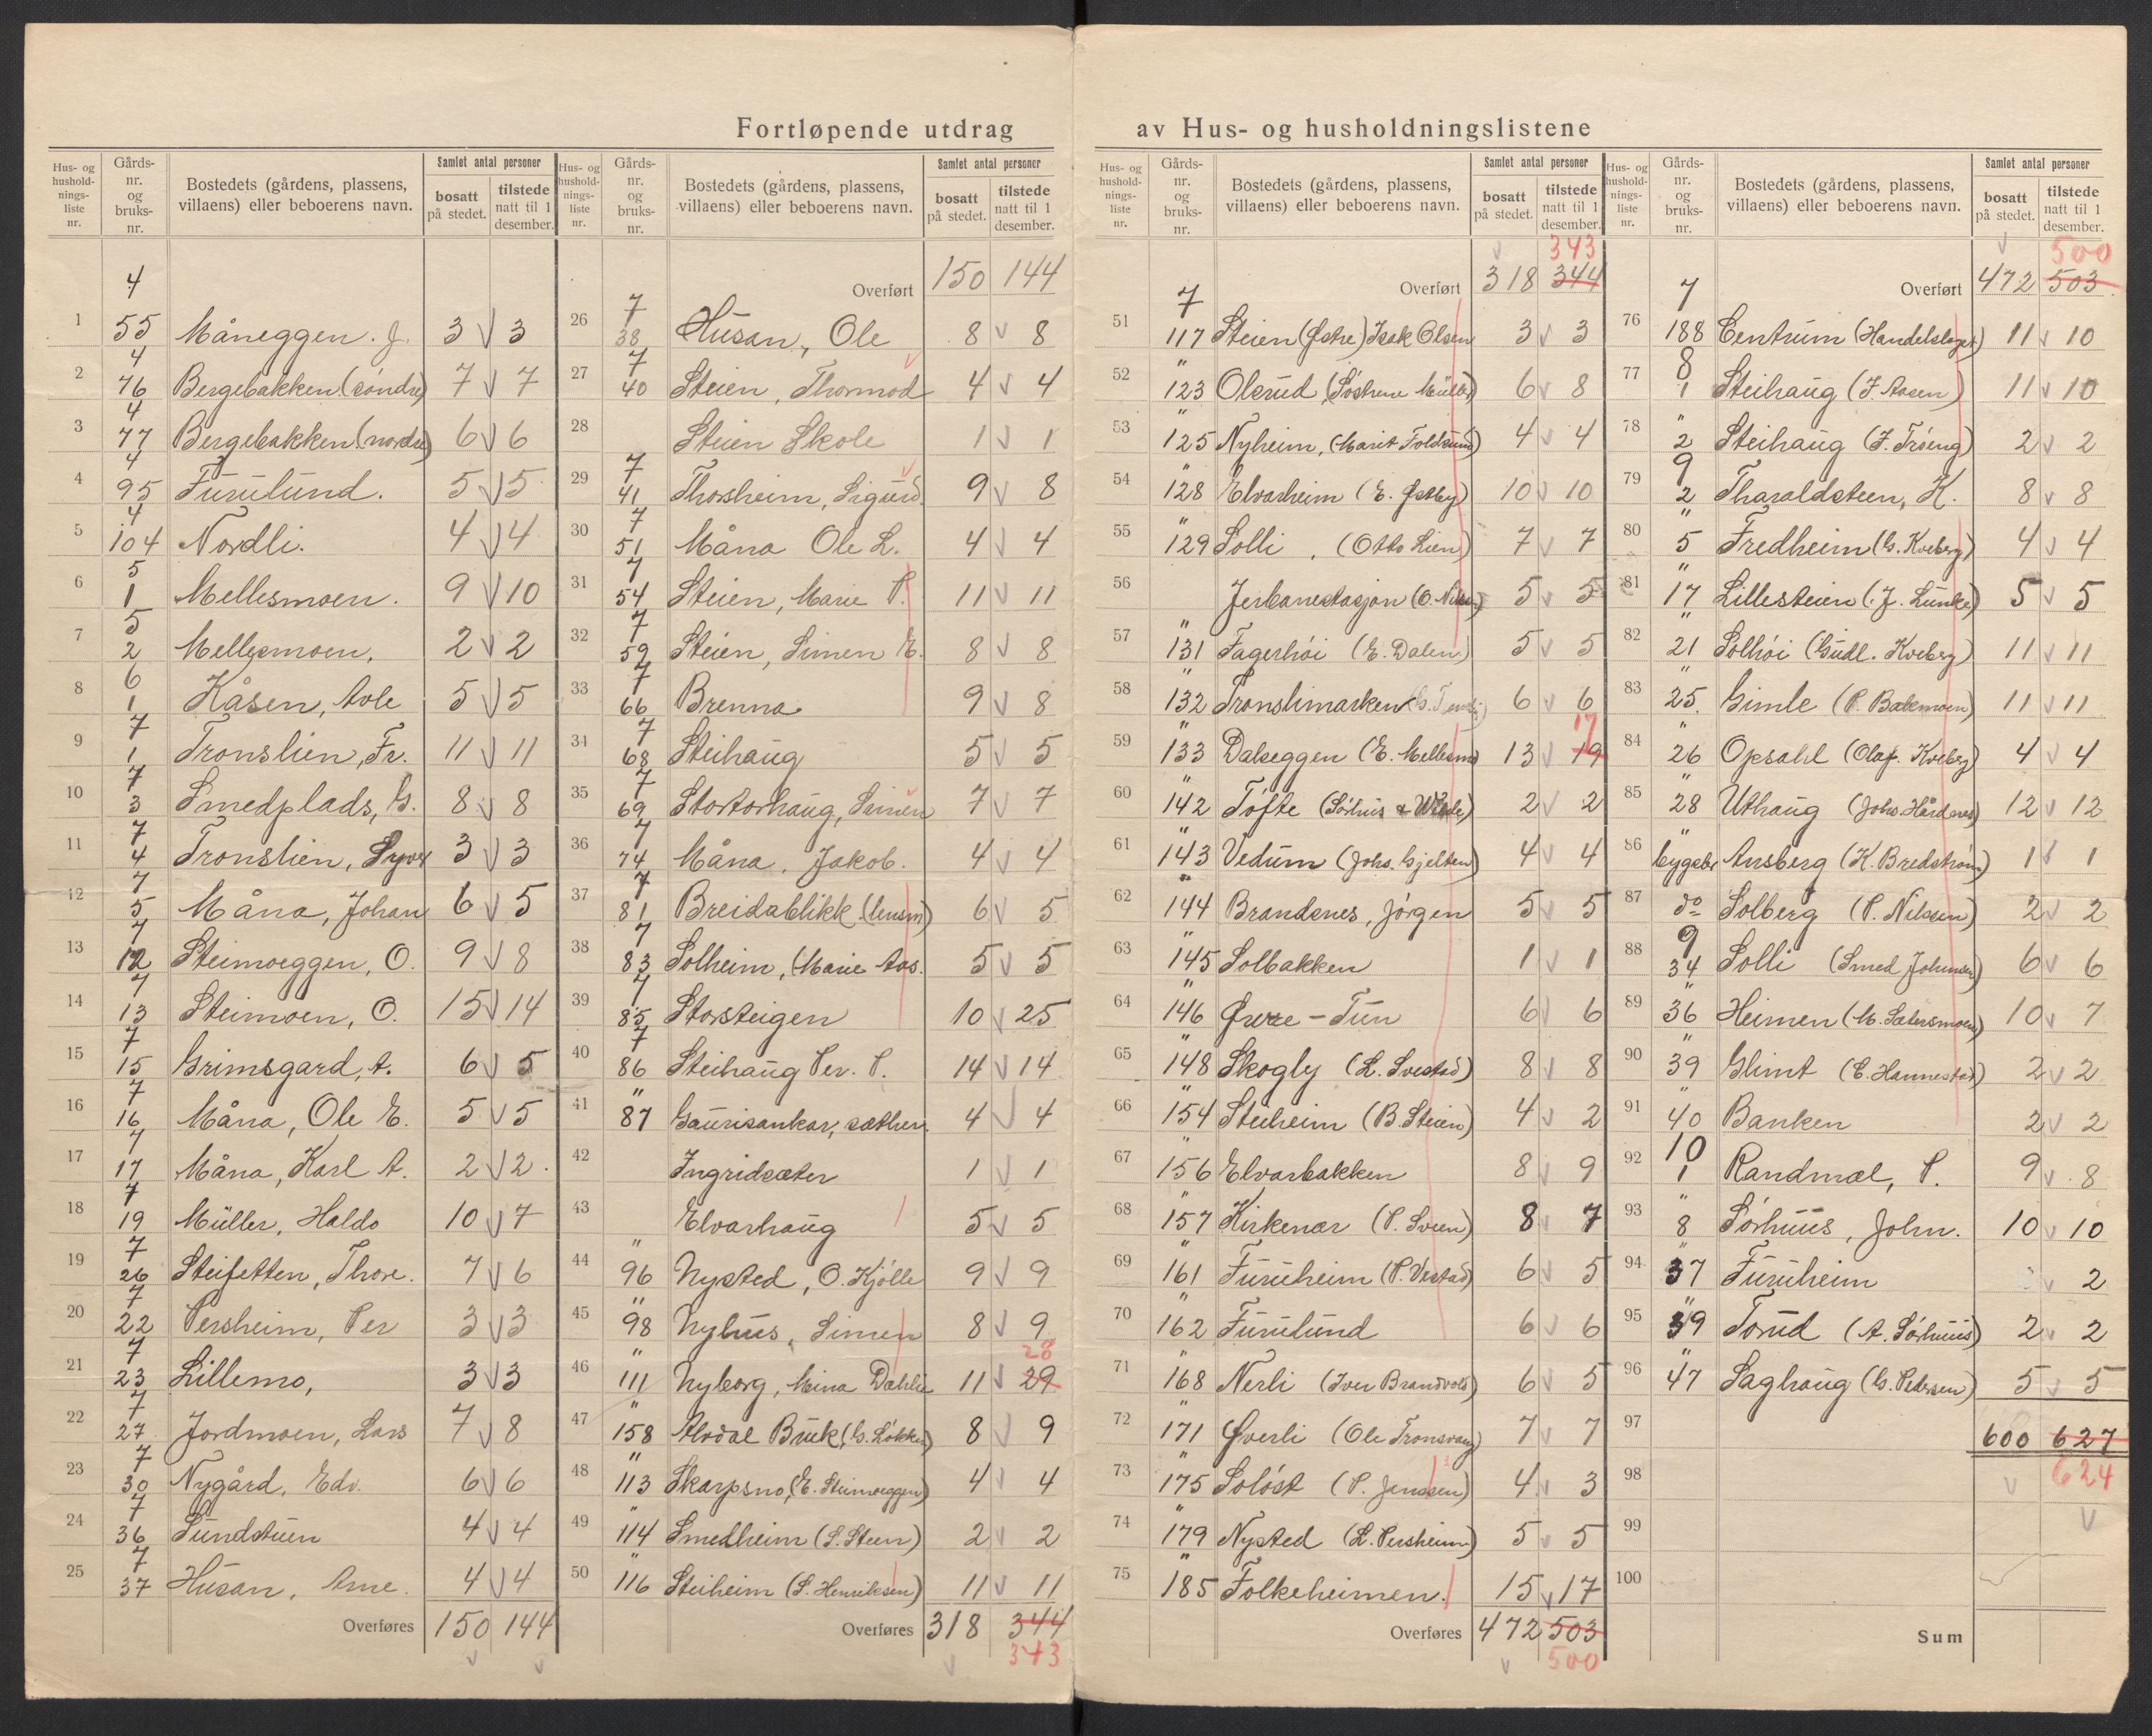 Fortløpende utdrag av Hus- og husholdningslistene
Hus- og husholdningsliste nr. | Gårds-nr. og bruks-nr. | Bostedets (gårdens, plassens, villaens) eller beboerens navn. | Samlet antal personer | bosatt på stedet. | tilstede natt til 1 desember.
1 4 55 Måneggen. J. 3 v 3
2 4 76 Bergebakken (søndre) 7 v 7
3 4 77 Bergebakken (nordre) 6 v 6
4 4 95 Furulund. 5 v 5
5 4 104 Nordli. 4 v 4
6 5 1 Mellesmoen. 9 v 10
7 5 2 Mellesmoen. 2 v 2
8 6 1 Kåsen, Avle 5 v 5
9 7 1 Tronslien, Fr. 11 v 11
10 7 3 Smedplads, G. 8 v 8
11 7 4 Tronslien, Syver 3 v 3
12 7 5 Måna, Johan 6 v 5
13 7 12 Steimoeggen, O. 9 v 8
14 7 13 Steimoen, O. 15 v 14
15 7 15 Grimsgard, A. 6 v 5
16 7 16 Måna, Ole E. 5 v 5
17 7 17 Måna, Karl A. 2 v 2
18 7 19 Müller, Haldo 10 v 7
19 7 26 Steifetten, Thore. 7 v 6
20 7 22 Persheim, Per 3 v 3
21 7 23 Lillemo, 3 v 3
22 7 27 Jordmoen, Lars 7 v 8
23 7 30 Nygård, Edv. 6 v 6
24 7 36 Sundstuen 4 v 4
25 7 37 Husan, Arne. 4 v 4
Overføres 150 144
Hus- og husholdningsliste nr. | Gårds-nr. og bruks-nr. | Bostedets (gårdens, plassens, villaens) eller beboerens navn. | Samlet antal personer | bosatt på stedet. | tilstede natt til 1 desember.
Overført 150 144
26 7 38 Husan, Ole 8 v 8
27 7 40 Steien, Thormod 4 v 4
28 Steien Skole 1 v 1
29 7 41 Thorsheim, Sigurd 9 v 8
30 7 51 Måna Ole L. 4 v 4
31 7 54 Steien, Marie P. 11 v 11
32 7 59 Steien, Simen E. 8 v 8
33 7 66 Brenna 9 v 8
34 7 68 Steihaug 5 v 5
35 7 69 Stortorhaug, Simen 7 v 7
36 7 74 Måna, Jakob. 4 v 4
37 7 81 Breidablikk (lensm) 6 v 5
38 7 83 Solheim, (Marie Aas. 5 v 5
39 7 85 Storsteigen 10 v 25
40 7 86 Steihaug Per. P. 14 v 14
41 " 87 Gaurisankar, sæther. 4 v 4
42 Ingridsæter 1 v 1
43 Elvarhaug 5 v 5
44 " 96 Nysted, O. Kjølle 9 v 9
45 " 98 Nyhus, Simen 8 v 9
46 " 111 Nyborg, Mina Dahlie 11 v 29 28
47 " 158 Alvdal Bruk, (G. Løkken) 8 v 9
48 " 113 Skarpsno, (E. Steimoeggen) 4 v 4
49 " 114 Smedheim (S. Steen) 2 v 2
50 " 116 Steiheim (S. Henriksen) 11 v 11
Overføres 318 344 343
Hus- og husholdningsliste nr. | Gårds-nr. og bruks-nr. | Bostedets (gårdens, plassens, villaens) eller beboerens navn. | Samlet antal personer | bosatt på stedet. | tilstede natt til 1 desember.
Overført 318 344 343
51 7 117 Steien (Østre) Isak Olsen 3 v 3
52 " 123 Olsrud (Søstrene Müller) 6 v 8
53 " 125 Nyheim, (Marit Foldsund) 4 v 4
54 " 128 Elvarheim (E. Østby) 10 v 10
55 " 129 Solli, (Otto Lien) 7 v 7
56 Jerbanestasjon (O. Nilsen) 5 v 5
57 " 131 Fagerhøi (E. Dalen.) 5 v 5
58 " 132 Tronslimarken 6 v 6
59 " 133 Dalseggen (E. Mellesmo 13 v 19 17
60 " 142 Tofte (Sørhus & 2 v 2
61 " 143 Vedum (Johs. Gjelten) 4 v 4
62 " 144 Brandsnes, Jørgen 5 v 5
63 " 145 Solbakken 1 v 1
64 " 146 Øvre-Tun 6 v 6
65 " 148 Skogly (L. Svestad) 8 v 8
66 " 154 Steiheim (B. Steien) 4 v 2
67 " 156 Elvarbakken 8 v 9
68 " 157 Kirkenær (P. Sveen) 8 v 7
69 " 161 Furuheim (P. Vestad) 6 v 5
70 " 162 Furulund 6 v 6
71 " 168 Nerli (Iver Brandvold) 6 v 5
72 " 171 Øverli (Ole Tronsvang) 7 v 7
73 " 175 Soløst (P. Jenssen) 4 v 3
74 " 179 Nysted (L. Persheim) 5 v 5
75 " 185 Folkeheimen. 15 v 17
Overføres 472 503 500
Hus- og husholdningsliste nr. | Gårds-nr. og bruks-nr. | Bostedets (gårdens, plassens, villaens) eller beboerens navn. | Samlet antal personer | bosatt på stedet. | tilstede natt til 1 desember.
Overført 472 503 500
76 7 188 Centrum (Handelslaget) 11 v 10
77 8 1 Steihaug (J. Aasen) 11 v 10
78 " 2 Steihaug (J. Trøeng) 2 v 2
79 9 2 Tharaldsteen, K. 8 v 8
80 " 5 Fredheim (G. Kveberg) 4 v 4
81 " 17 Lillesteien (J. Lunke) 5 v 5
82 " 21 Solhøi (Gudl. Kveberg) 11 v 11
83 " 25 Gimle (P. Bakmoen) 11 v 11
84 " 26 Opsahl (Olaf. Kveberg) 4 v 4
85 " 28 Uthaug (Johs. Hårdnes) 12 v 12
86 " bygsebr Ansberg (K. Bredstrøm) 1 v 1
87 do Solberg (P. Nilsen) 2 v 2
88 9 34 Solli (Smed Johansen) 6 v 6
89 " 36 Heimen (M. Sætersmoen) 10 v 7
90 " 39 Glimt (E. Hannestad) 2 v 2
91 " 40 Banken 2 v 2
92 10 1 Randmæl, P. 9 v 8
93 " 8 Sørhuus, John. 10 v 10
94 " 37 Furuheim v 2
95 " 39 Torud (A. Sørhuus) 2 v 2
96 " 47 Saghaug (G. Pedersen) 5 v 5
97 600 627
98 624
99
100
Sum